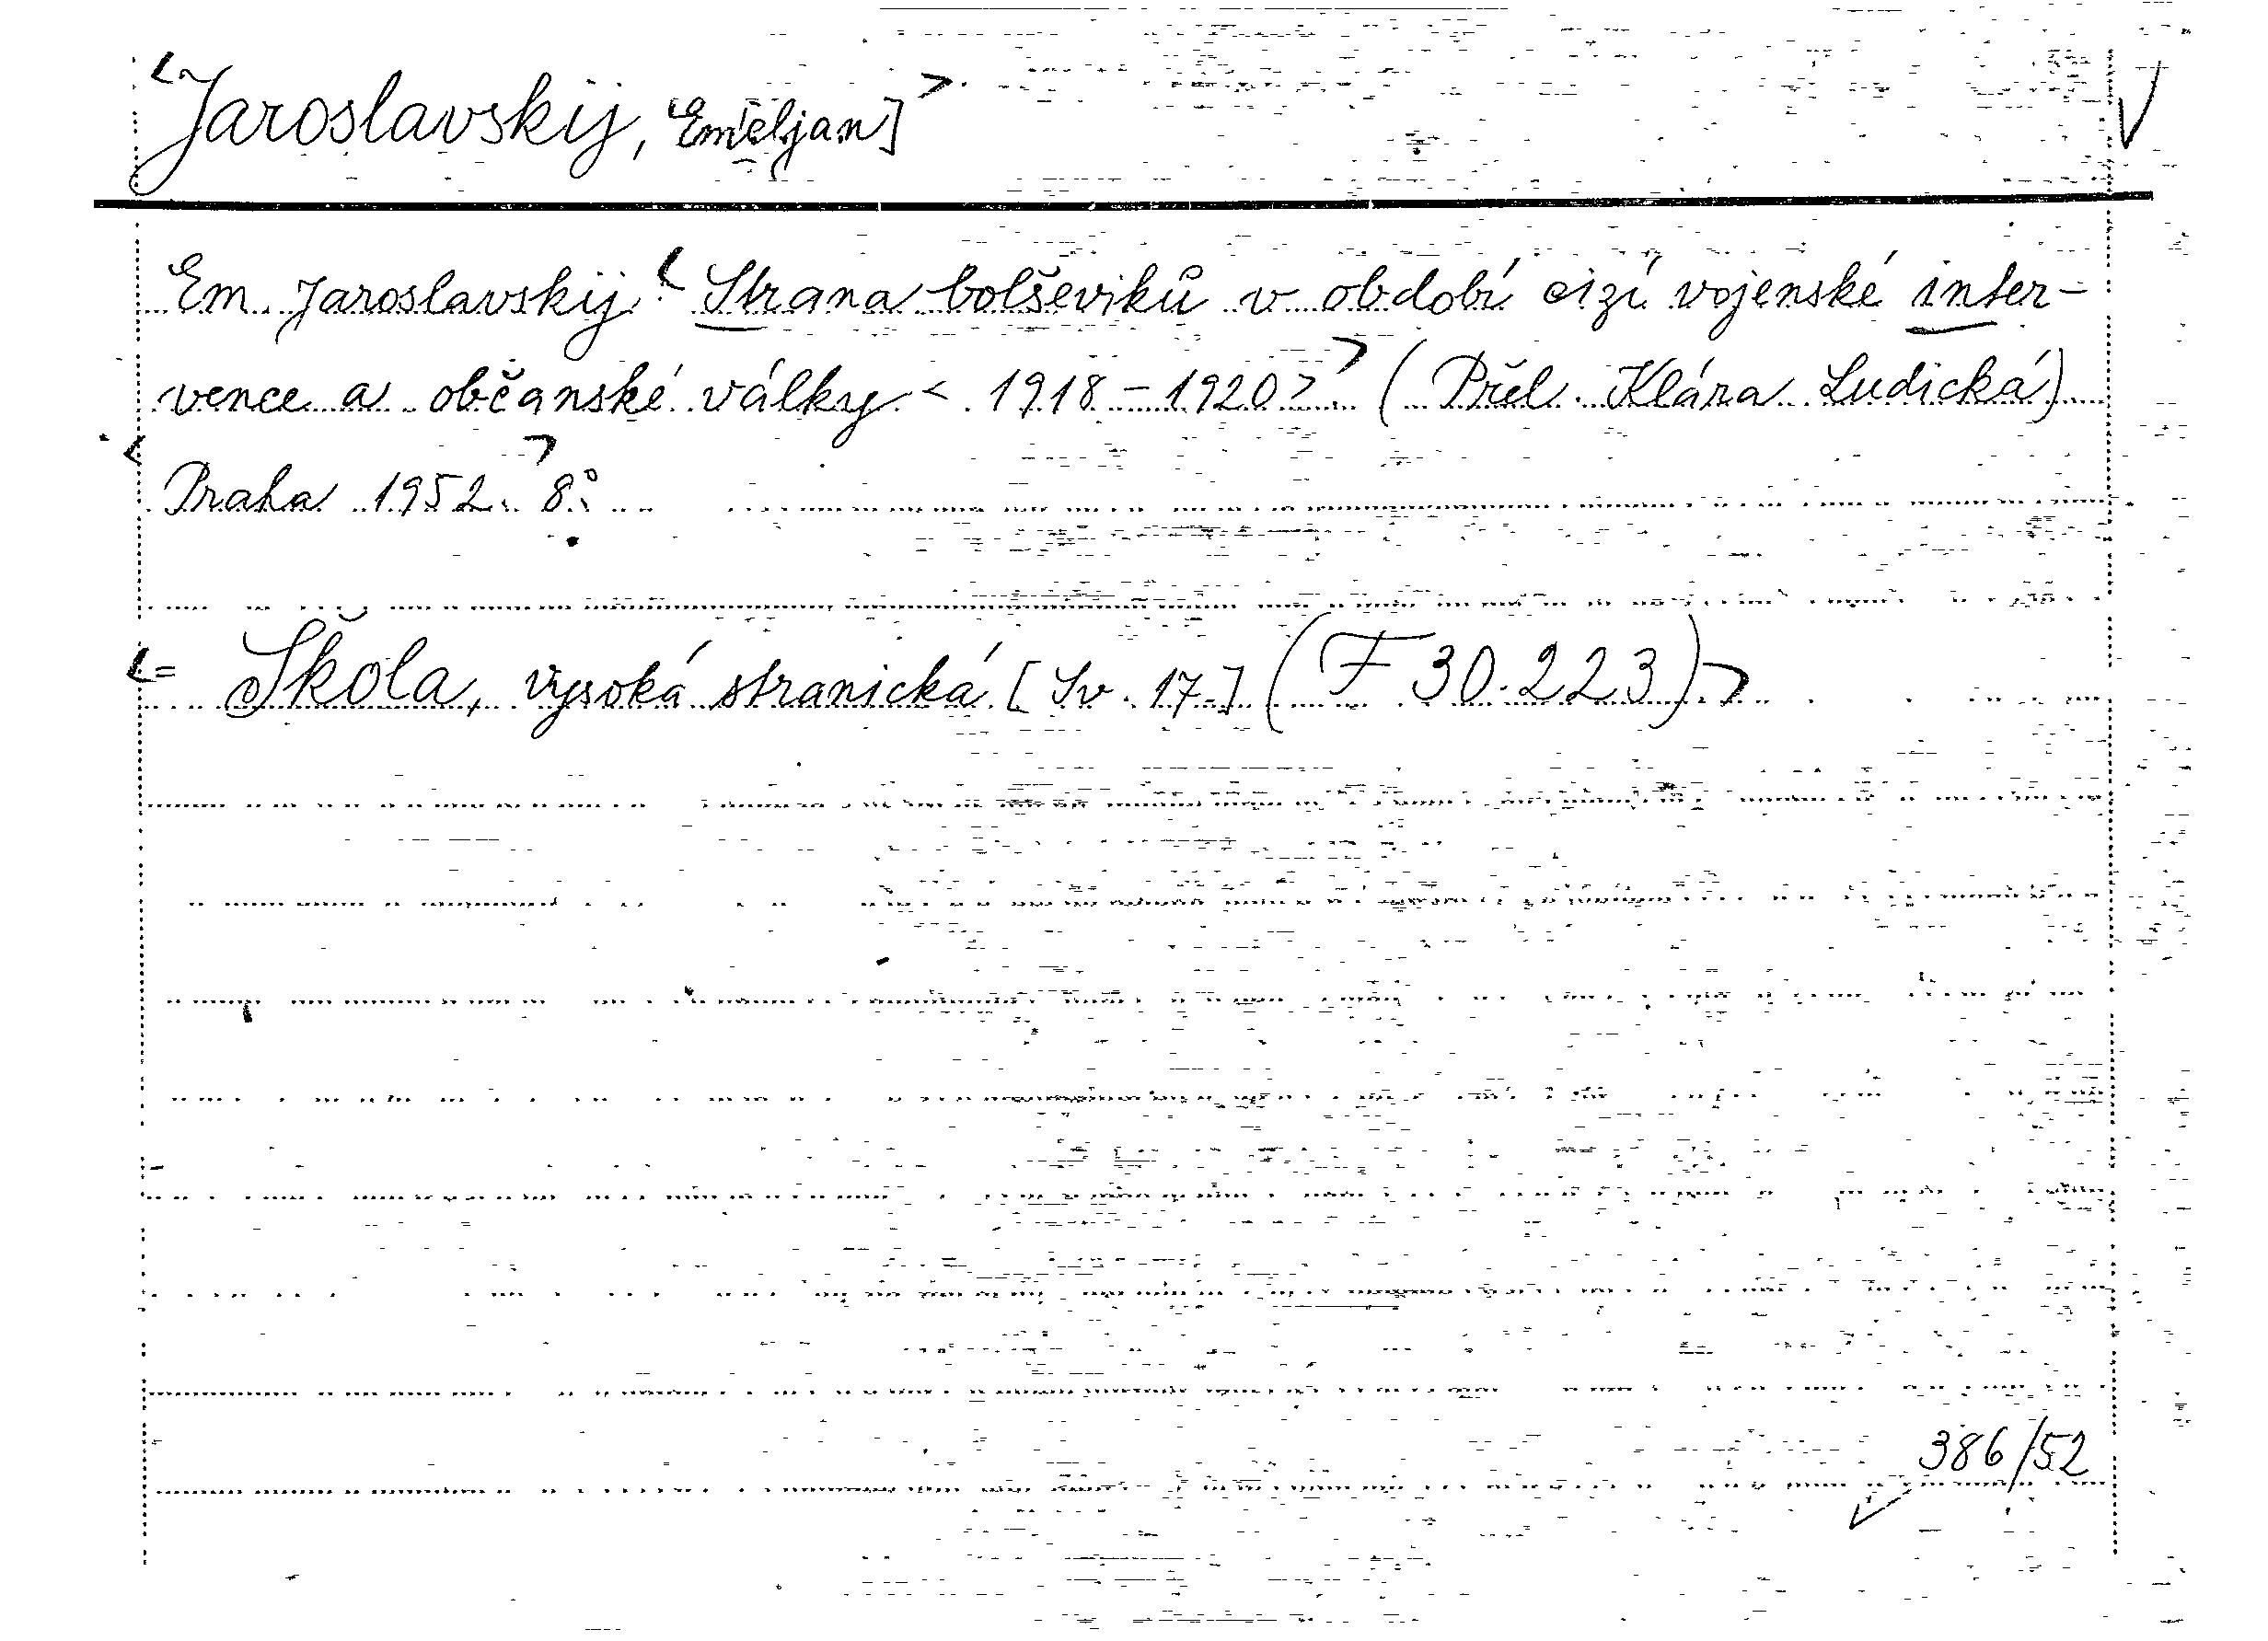 <Jaroslavskij, Emeljan]>
Em. Jaroslavskij: <Strana bolševiků v období cizí vojenské inter-
vence a občanské války <1918-1920>.> (Přel. Klára Ludická)
<Praha 1952.> 8°.
<= Škola, vysoká stranická [Sv. 17.] (F 30.223)>
386/52